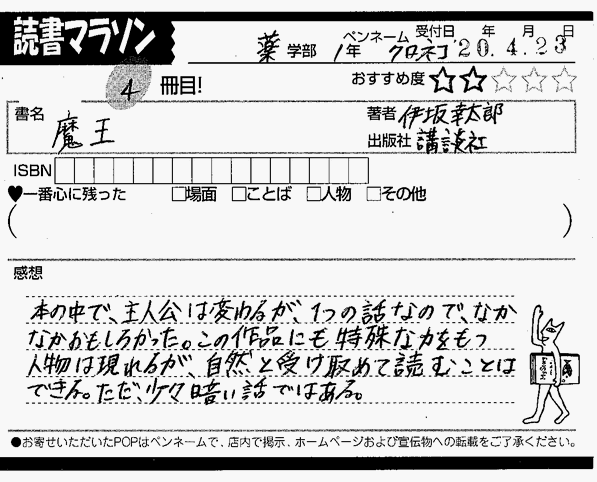 読書マラソン
薬 学部 1年 ペンネーム クロネコ 受付日 '20年.4月.23日
4 冊目! おすすめ度 ★★☆☆☆
書名 魔王
著者 伊坂幸太郎
出版社 講談社
ISBN
♥一番心に残った □場面 □ことば □人物 □その他
( )
感想
本の中で、主人公は変わるが、1つの話なので、なか
なかおもしろかった。この作品にも特殊な力をもつ
人物は現れるが、自然と受け取めて読むことは
できる。ただ、少々暗い話ではある。
●お寄せいただいたPOPはペンネームで、店内で掲示、ホームページおよび宣伝物への転載をご了承ください。